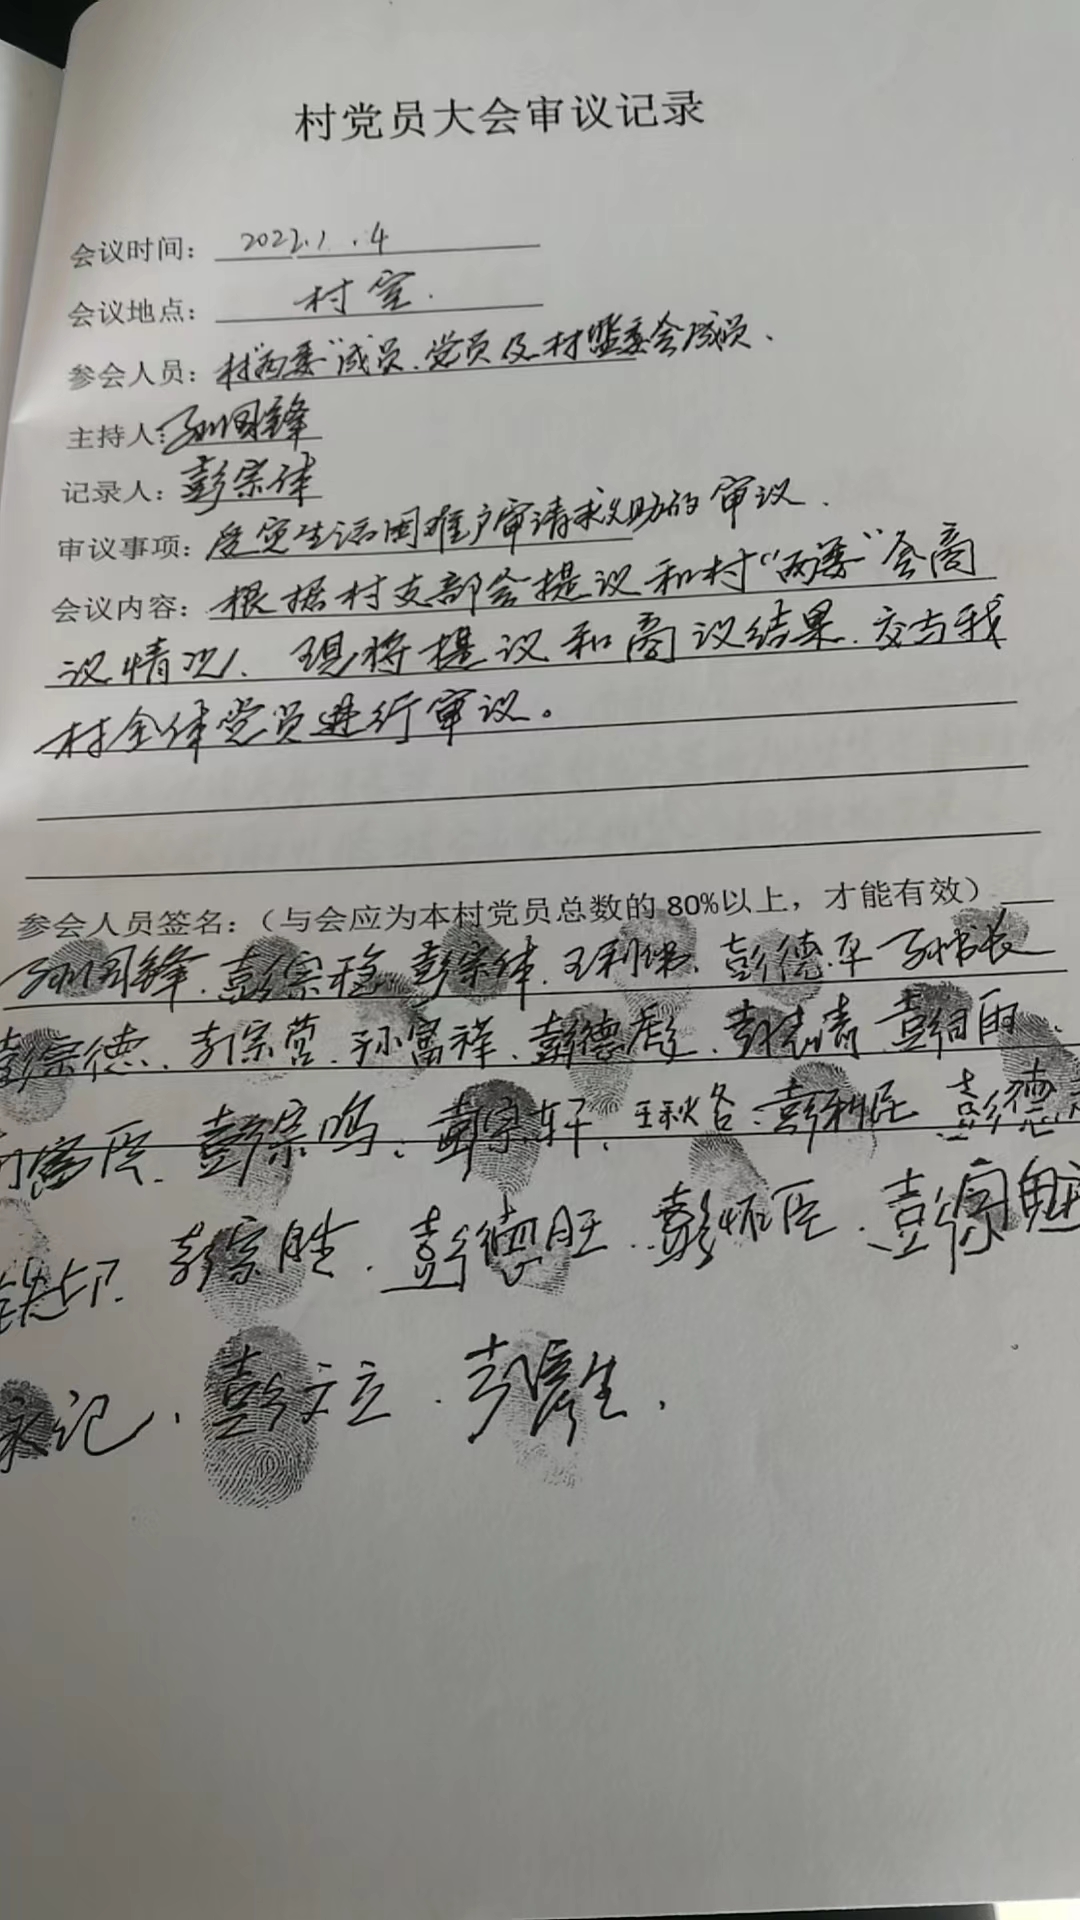 村党员大会审议记录
会议时间：2022.1.4
会议地点：村室.
参会人员：村"两委"成员、党员及村监委会成员、
主持人：孙国锋
记录人：彭宗体
审议事项：受灾生活困难户审请求助的审议.
会议内容：根据村支部会提议和村"两委"会商
议情况、现将提议和商议结果、交与我
村全体党员进行审议。
参会人员签名：（与会应为本村党员总数的80%以上，才能有效）
孙国锋、彭宗稳、彭宗体、王利、彭德平
彭宗德、李宗营、孙富祥、彭德彪、彭志清
彭宗鸣、彭宗轩、王秋、彭利民、彭德
彭宗胜、彭德旺、彭怀臣、彭宗魁
永记、彭文立